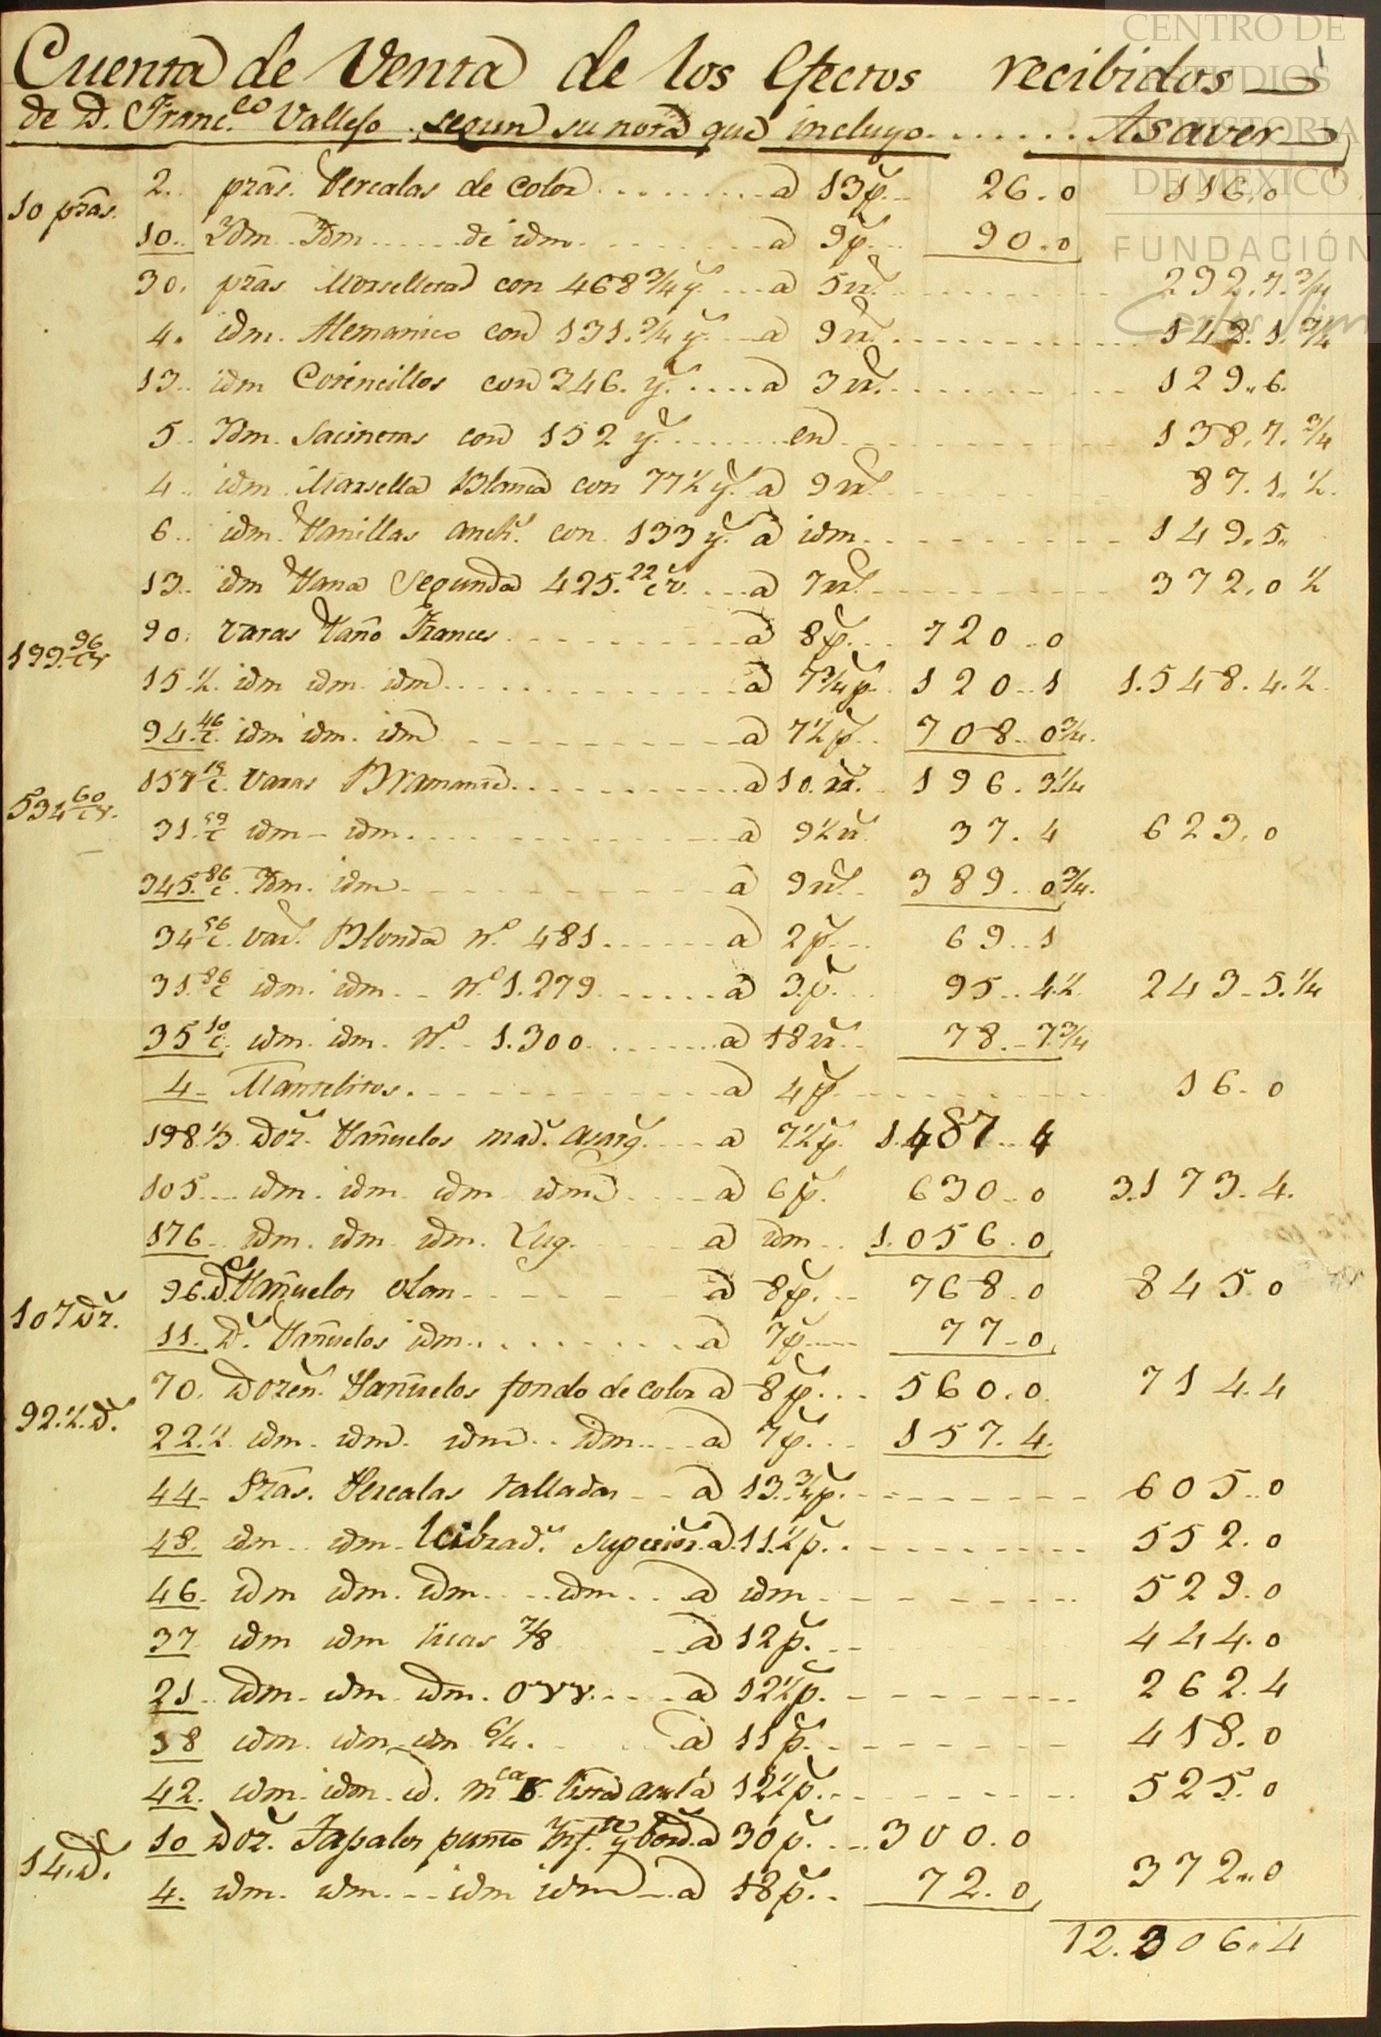 CENTRO DE
ESTUDIOS
DE HISTORIA
DE MÉXICO
FUNDACIÓN
Carlos Slim
Cuenta de Venta de los Efectos recibidos
de D. Franc.co Vallejo segun su nota que incluyo...... Asaver
10 pzãs. 2.. pzãs. Percalas de Color ........ a 13 p.. 26. 0 116. 0
10.. Idm. Idm ..... de idm ........ a 9 p... 90.. 0
30. pzãs Morselleras con 468 3/4 y. ... a 5 rr. 292. 7. 3/4
4. idm. Alemanico con 131. 3/4 y. ... a 9 rr. 148. 1. 3/4
13.. idm Cotencillos con 346. y. .... a 3 rr. 129.. 6.
5.. Idm. Sacinetas con 152 y. ...... en 138. 7. 3/4
4.. idm. Marsella Blanca con 77 1/2 y. a 9 rr. 87. 1. 1/2.
6.. idm. Panillas anch.s con 133 y. a idm. 149. 5..
13.. idm Pana Segunda 425. 22 c v. ... a 7 rr. 372. 0 1/2
199. 96 c v 90. varas Paño Frances ........ a 8 p... 720.. 0
15. 1/2. idm idm. idm ........ a 7 3/4 p.. 120.. 1 1.548. 4. 1/2.
94. 46 c. idm idm. idm ........ a 7 1/2 p.. 708.. 0 3/4.
534 60 c v. 157 19 c. Varas Bramante ........ a 10. rr. 196. 3 1/4
31. 59 c idm - idm. ........ a 9 1/2 rr 37. 4 623. 0
345. 86 c. Idm. idm ........ a 9 rr. 389.. 0 3/4.
34 56 c. var.s Blonda N.o 481 ...... a 2 p... 69.. 1
31. 86 c idm. idm.. - N.o 1.279 ...... a 3. p. 95.. 4 1/2. 243 - 5. 1/4
35 10 c. idm. idm. N.o - 1.300 ....... a 18 rr.. 78.. 7 3/4
4 - Mantelitos. ........ a 4 p. 16 - 0
198. 1/3. Doz.s Pañuelos mad.s .... a 7 1/2 p. 1.487.. 4
105 .... idm. idm. idm idm .... a 6 p. 630.. 0 3.173. 4.
176.. idm. idm. idm. Lug. ..... a idm.. 1.056. 0
107 Dz.s 96. D.s Pañuelos olan ........ a 8 p... 768. 0 845. 0
11. D.s Pañuelos idm ........ a 7 p.... 77 - 0
92. 1/2. D.s 70. Dozen.s Pañuelos fondo de color a 8 p... 560. 0. 714. 4
22. 1/2 idm. idm. idm.. idm.... a 7 p... 157. 4.
44 - Pzãs. Percalas ralladas - - a 13. 3/4 p. 605.. 0
48. idm.. idm - Labrad.s superior. a 11. 1/2 p. 552. 0
46. idm idm. idm .... idm... a idm 529. 0
37 idm idm 7/8 - a 12 p. 444. 0
21.. idm. idm. idm. ..... a 12 1/2 p. 262. 4
38 idm. idm idm 6/4. a 11 p. 418. 0
42. idm. idm. id. m.ca a 12 1/2 p. 525. 0
14. D.s 10 Doz.s Tapalos punto y bord. a 30 p. ... 300. 0
4. idm. idm. - - idm idm - a 18 p.. 72. 0 372.. 0
12.306. 4